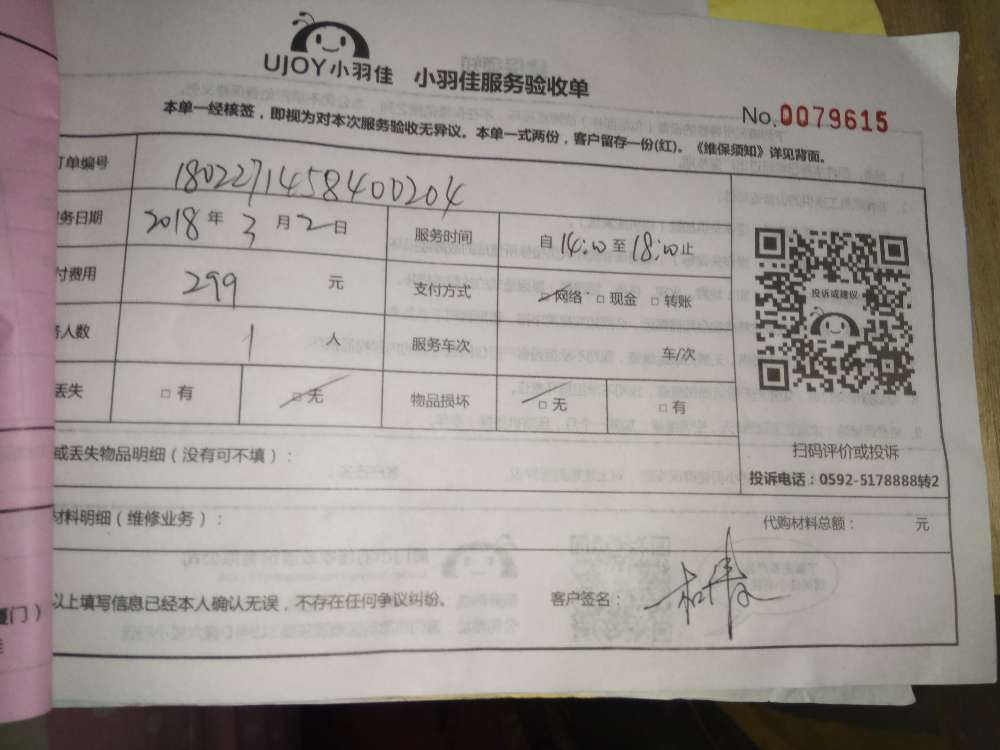 UJOY小羽佳 小羽佳服务验收单
No.0079615
本单一经核签，即视为对本次服务验收无异议。本单一式两份，客户留存一份(红)。《维保须知》详见背面。
订单编号 1802271458400204
务日期 2018 年 3 月 2 日 服务时间 自 14:00 至 18:00 止
付费用 299 元 支付方式 □网络 □现金 □转账
人数 1 人 服务车次 车/次
丢失 □有 □无 物品损坏 □无 □有
投诉或建议
扫码评价或投诉
投诉电话：0592-5178888转2
或丢失物品明细（没有可不填）：
材料明细（维修业务）： 代购材料总额： 元
以上填写信息已经本人确认无误，不存在任何争议纠纷。 客户签名：
厦门）